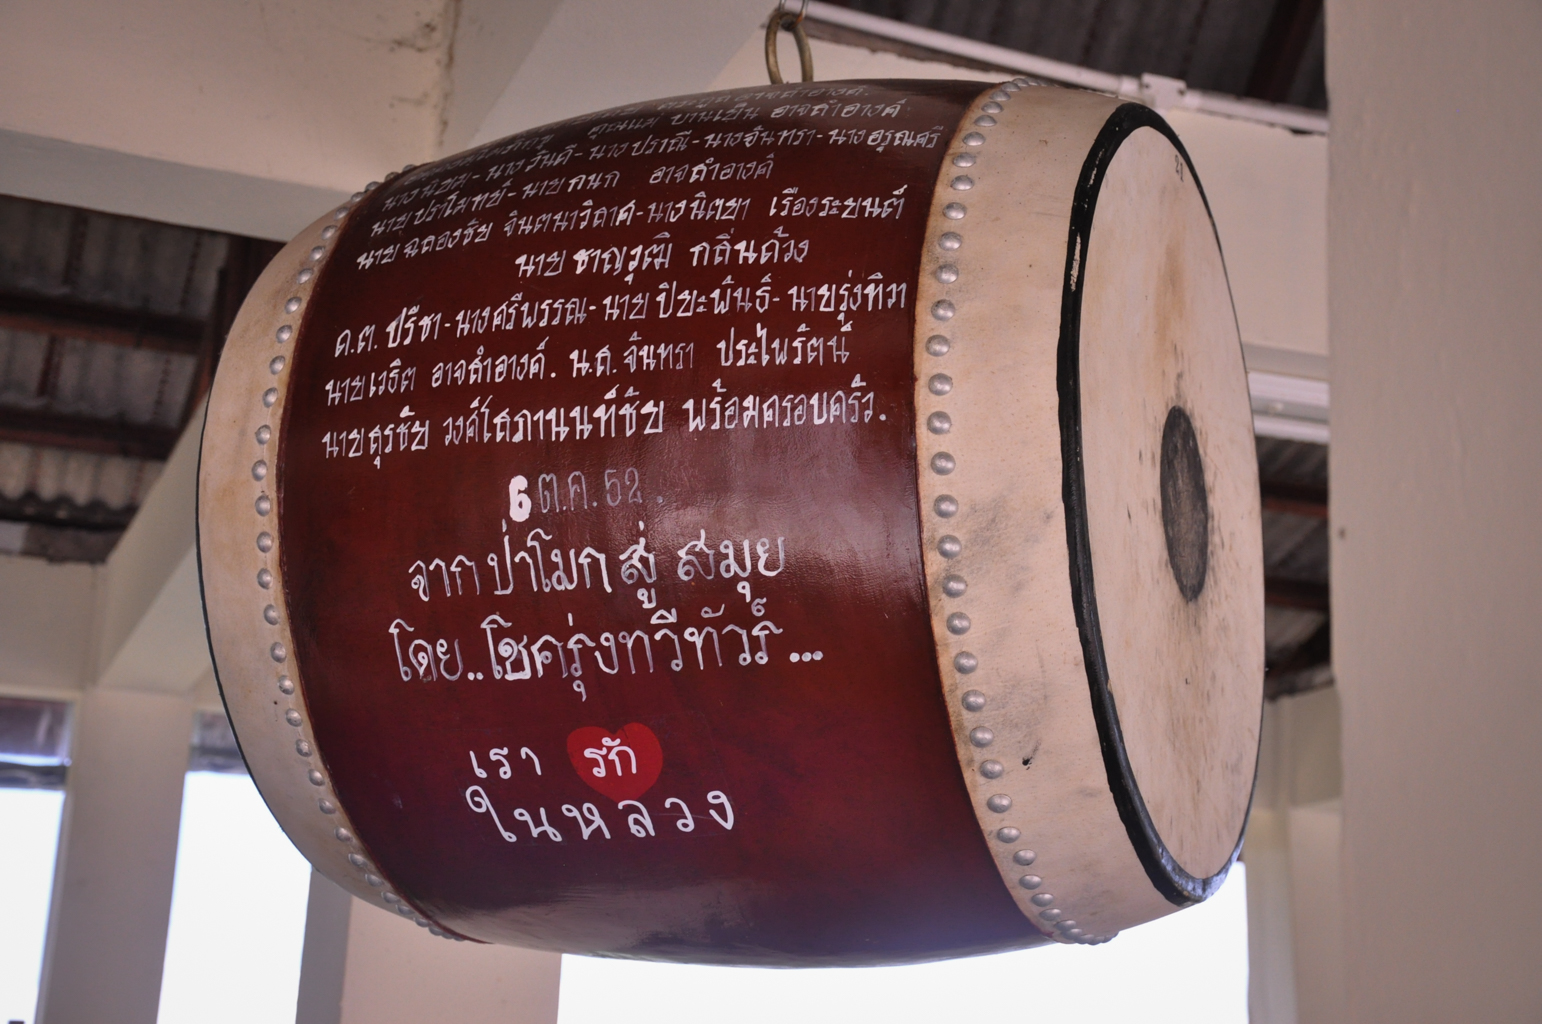 คุณแม่ บานเย็น อาจสำอางค์
นางนิยม-นางวันดี-นางปราณี-นางจันทรา-นางอรุณศรี
นายปราโมทย์-นายกนก อาจสำอางค์
นายฉลองชัย จินตนาวิลาศ-นางนิตยา เรืองระยนต์
นาย ชาญวุฒิ กลิ่นด้วง
ด.ต. ปรีชา-นางศรีพรรณ-นาย ปิยะพันธ์-นายรุ่งทิวา
นายเวธิต อาจสำอางค์. น.ส. จันทรา ประไพรัตน์
นายสุรชัย วงศ์โสภานนท์ชัย พร้อมครอบครัว.
6 ต.ค. 52.
จากป่าโมก สู่ สมุย
โดย..โชครุ่งทวีทัวร์...
เรา รัก
ในหลวง
21